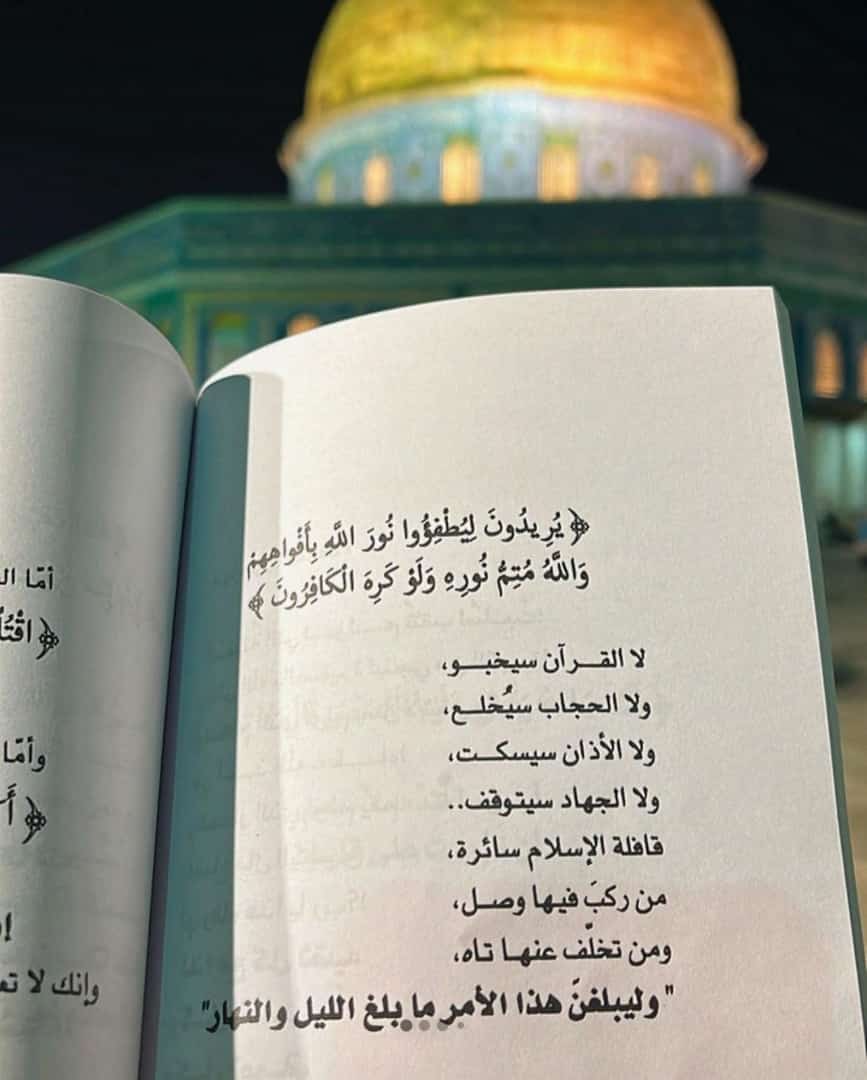 ﴿يُرِيدُونَ لِيُطْفِؤُوا نُورَ اللَّهِ بِأَفْوَاهِهِمْ
وَاللَّهُ مُتِمُّ نُورِهِ وَلَوْ كَرِهَ الْكَافِرُونَ﴾
لا القـرآن سيخبـو،
ولا الحجاب سيُخلـع،
ولا الأذان سيسكـت،
ولا الجهاد سيتوقف..
قافلة الإسلام سائرة،
من ركبَ فيها وصـل،
ومن تخلّف عنهـا تاه،
"وليبلغنّ هذا الأمر ما بلغ الليل والنهار"
أمّا
وأمّا
وإنك لا